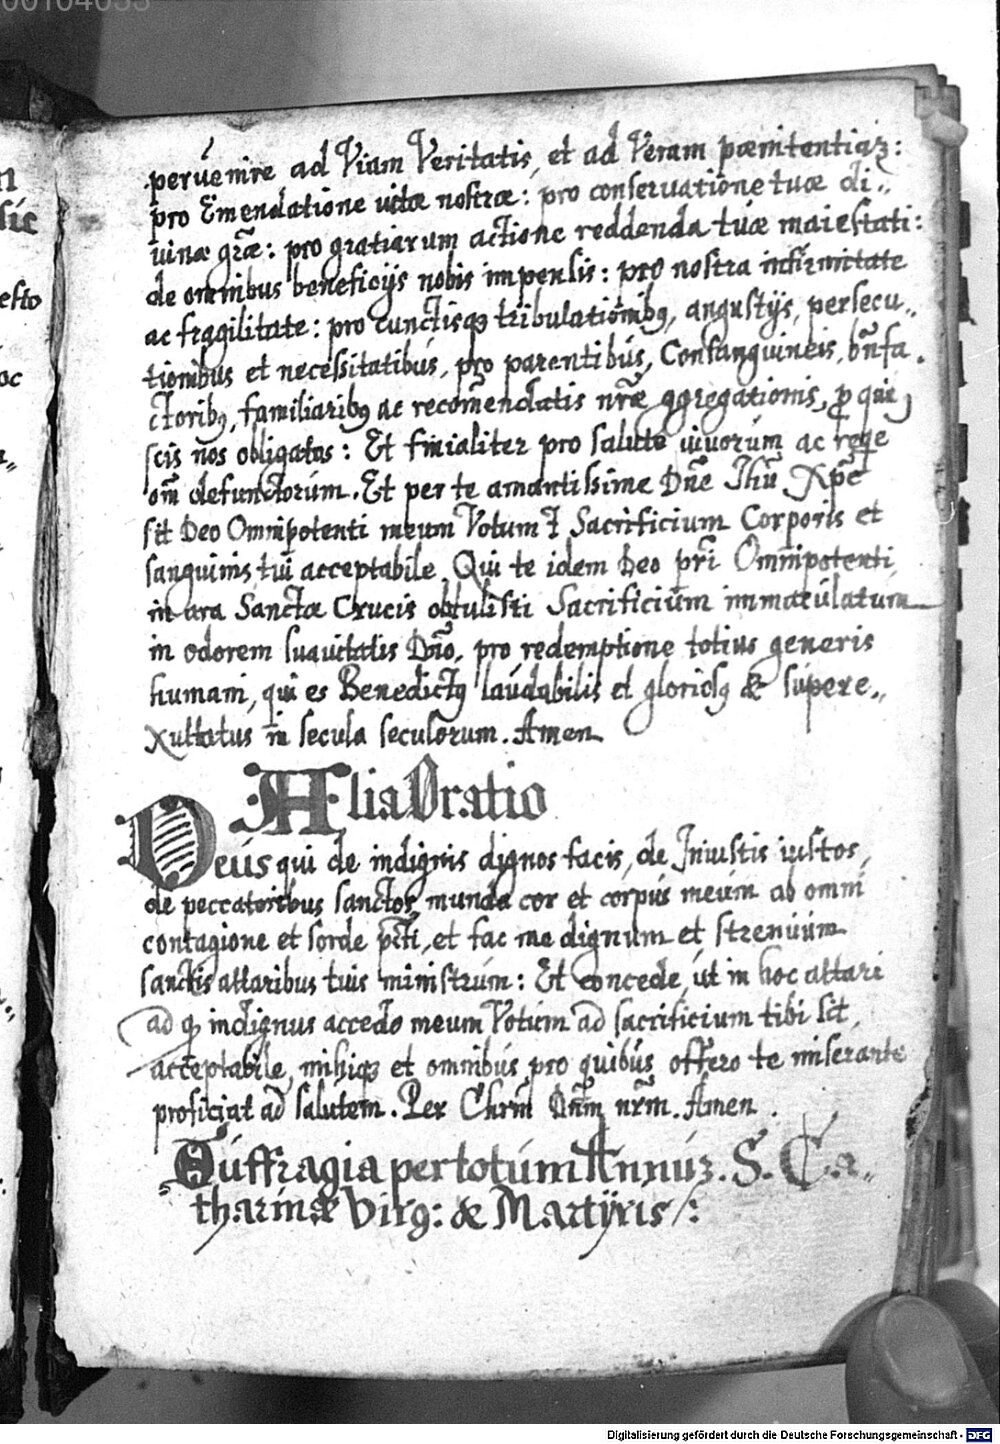 00104033
pervenire ad Viam Veritatis, et ad Veram pœnitentiaȝ:
pro Emendatione vitæ nostræ: pro conservatione tuæ di„
vinæ grǣ: pro gratiarum actione reddenda tuæ maiestati:
de omnibus beneficijs nobis impensis: pro nostra infirmitate
ac fragilitate: pro cunctisqȝ tribulationibꝫ, angustijs, persecu„
tionibus et necessitatibus, pro parentibus, Consanguineis, bn̄fa„
ctoribꝫ, familiaribꝫ ac recom̄endatis nr̄æ aggregationis, ꝓ qui
scis nos obligatos: Et finialiter pro salute vivorum ac reqe
om̄ defunctorum. Et per te amantissime Dn̄e Jhū Xp̄e
sit Deo Omnipotenti meum Votum Sacrificium Corporis et
sanguinis tui acceptabile. Qui te idem Deo pr̄i Omnipotenti
in ara Sanctæ Crucis obtulisti Sacrificium immaculatum
in odorem suavitatis Dn̄o, pro redemptione totius generis
humani, qui es Benedictꝫ laudabilis et gloriosꝫ & supere„
xultatus in secula seculorum. Amen
Alia Oratio
Deus qui de indignis dignos facis, de Iniustis iustos,
de peccatoribus sanctos, munda cor et corpus meum ab omni
contagione et sorde pc̄ti, et fac me dignum et strenuum
sanctis altaribus tuis ministrum: Et concede, ut in hoc altari
ad qȝ indignus accedo meum Votum ad sacrificium tibi sit
acceptabile, mihiqȝ et omnibus pro quibus offero te miserante
proficiat ad salutem. Per Chrm̄ Dn̄m nr̄m. Amen.
Suffragia per totum Annuȝ. S. Ca„
tharinæ Virg: & Martÿris/:
n
sic
esto
oc
Digitalisierung gefördert durch die Deutsche Forschungsgemeinschaft - DFG